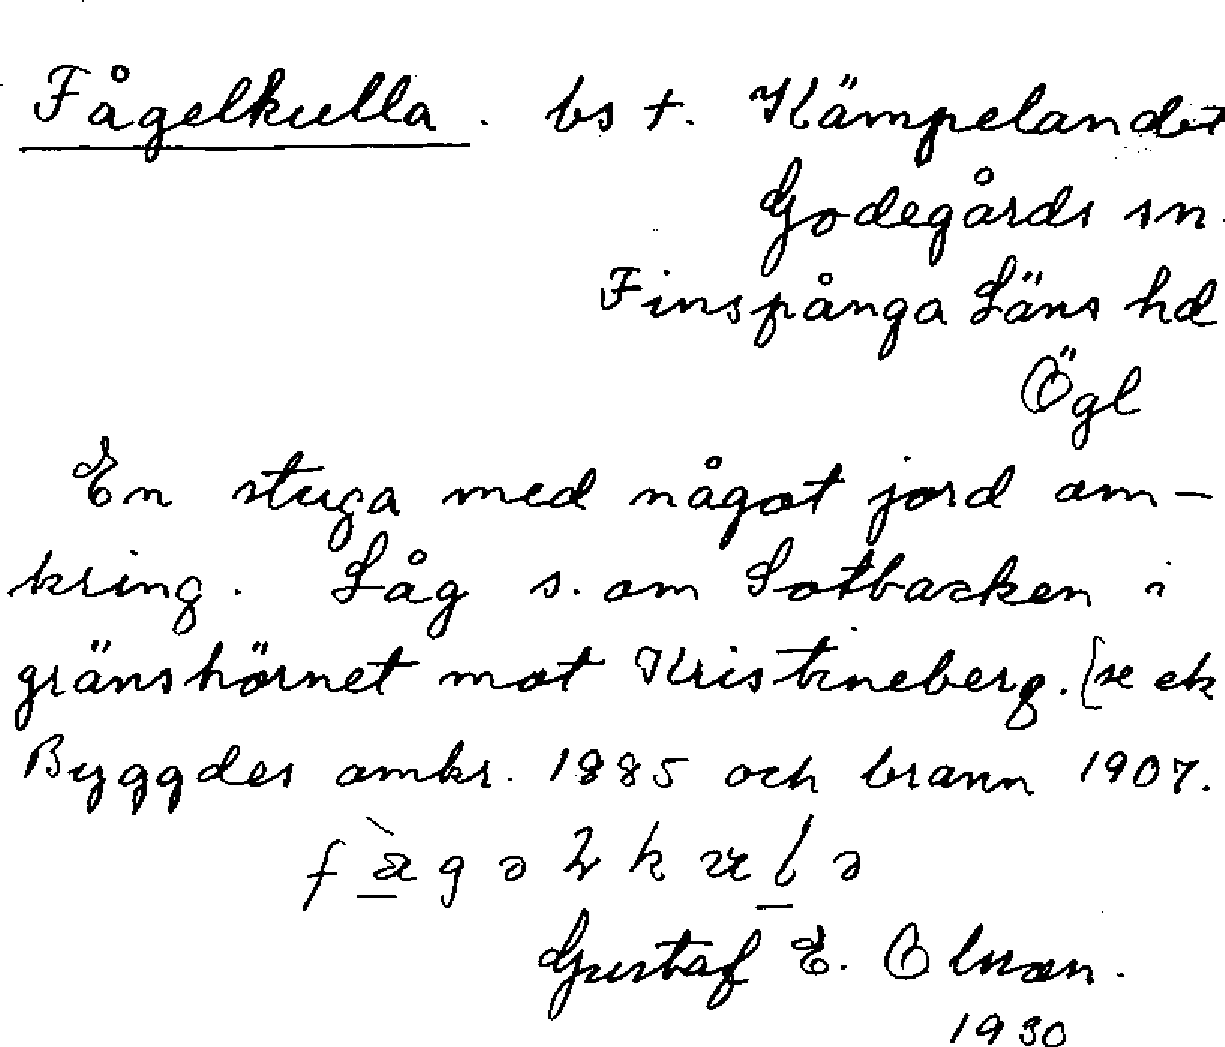 Fågelkulla. bs t. Kämpelandet
Godegårds sn.
Finspånga Läns hd
Ögl
En stuga med något jord om-
kring. Låg s. om Sotbacken i
gränshörnet mot Kristineberg. (se ek
Byggdes omkr. 1885 och brann 1907.
Gustaf E. Olsson.
1930